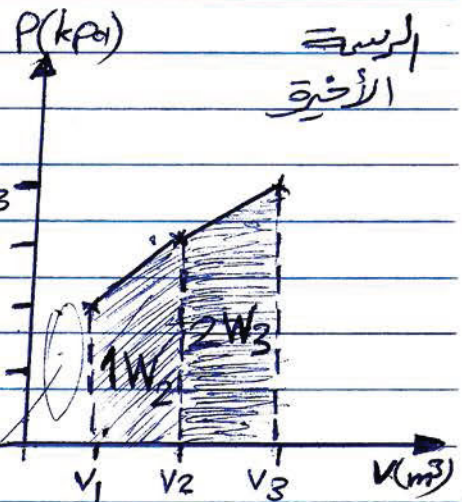 P(kpa)
الرسمة
الأخيرة
3
1W2
2W3
V1
V2
V3
V(m3)